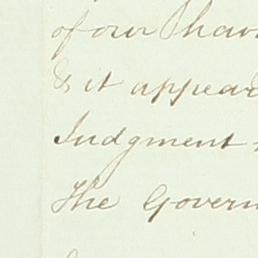 of our
& it appear
Judgment
The Govern